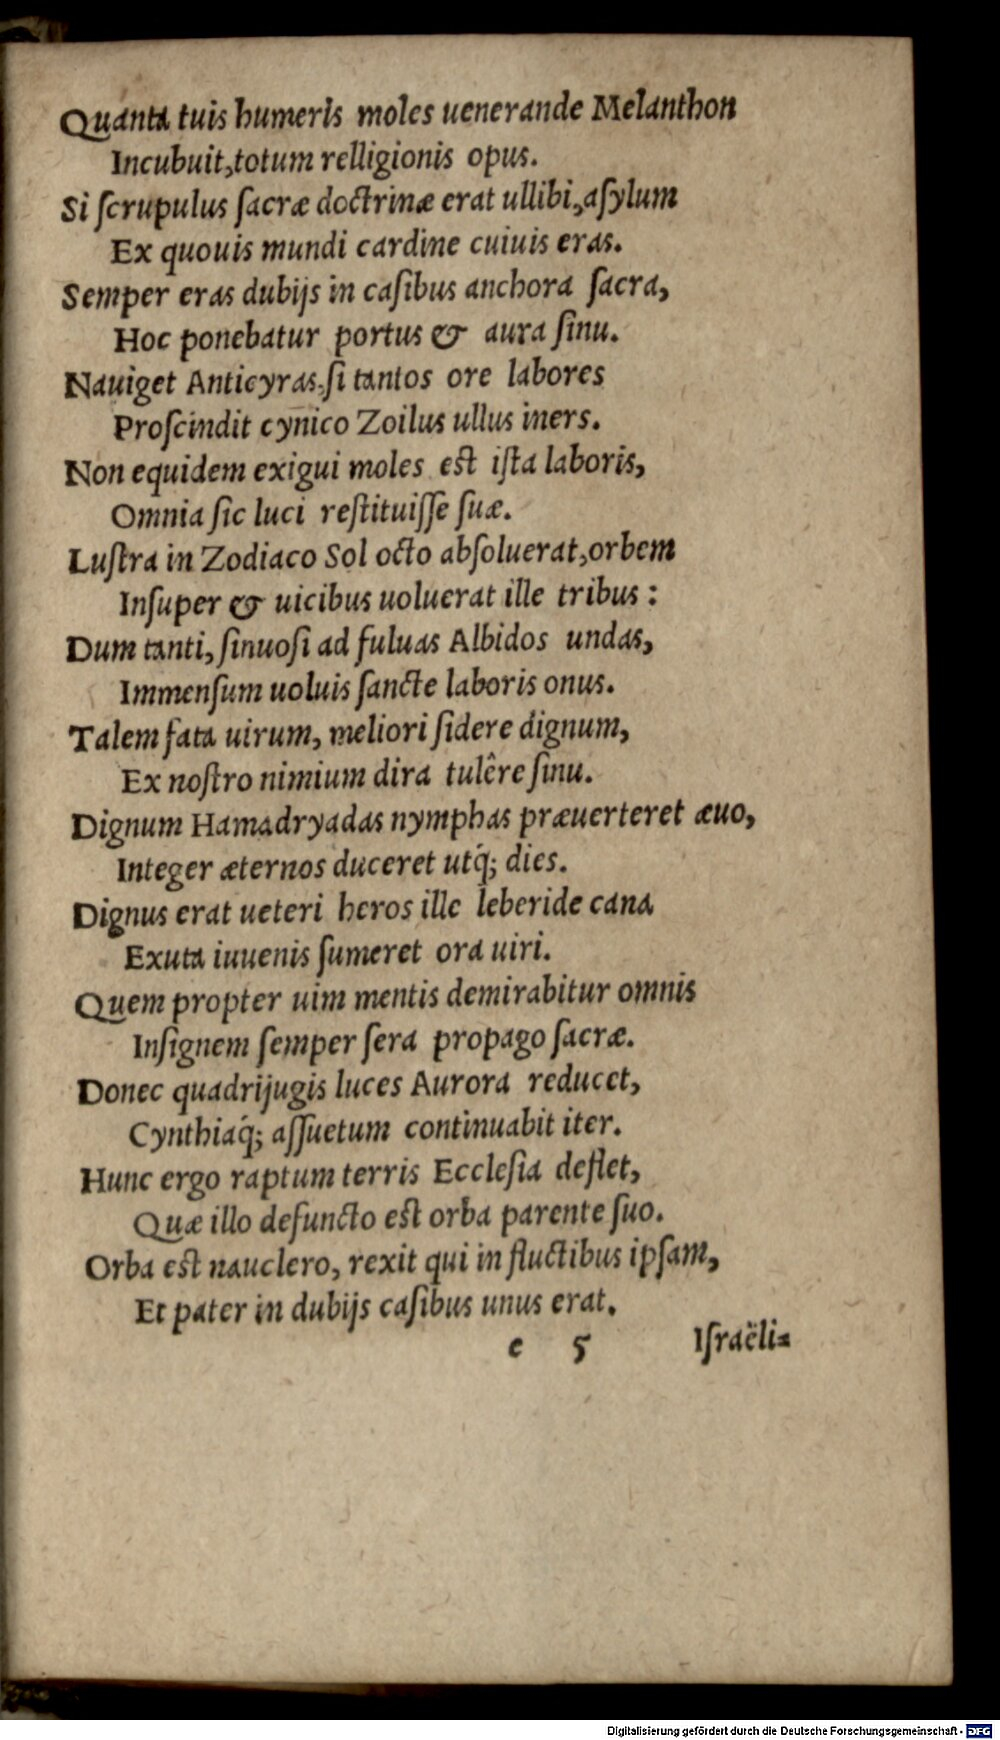 Quanta tuis humeris moles uenerande Melanthon
Incubuit, totum relligionis opus.
Si ſcrupulus ſacræ doctrinæ erat ullibi, aſylum
Ex quouis mundi cardine cuiuis eras.
Semper eras dubijs in caſibus anchora ſacra,
Hoc ponebatur portus & aura ſinu.
Nauiget Anticyras, ſi tantos ore labores
Proſcindit cynico Zoilus ullus iners.
Non equidem exigui moles eſt iſta laboris,
Omnia ſic luci reſtituiſſe ſuæ.
Luſtra in Zodiaco Sol octo abſoluerat, orbem
Inſuper & uicibus uoluerat ille tribus :
Dum tanti, ſinuoſi ad fuluas Albidos undas,
Immenſum uoluis ſancte laboris onus.
Talem fata uirum, meliori ſidere dignum,
Ex noſtro nimium dira tulêre ſinu.
Dignum Hamadryadas nymphas præuerteret æuo,
Integer æternos duceret utq́; dies.
Dignus erat ueteri heros ille leberide cana
Exuta iuuenis ſumeret ora uiri.
Quem propter uim mentis demirabitur omnis
Inſignem ſemper ſera propago ſacræ.
Donec quadrijugis luces Aurora reducet,
Cynthiaq́; aſſuetum continuabit iter.
Hunc ergo raptum terris Eccleſia deflet,
Quæ illo defuncto eſt orba parente ſuo.
Orba eſt nauclero, rexit qui in fluctibus ipſam,
Et pater in dubijs caſibus unus erat.
e 5 Iſraëli⸗
Digitalisierung gefördert durch die Deutsche Forschungsgemeinschaft - DFG